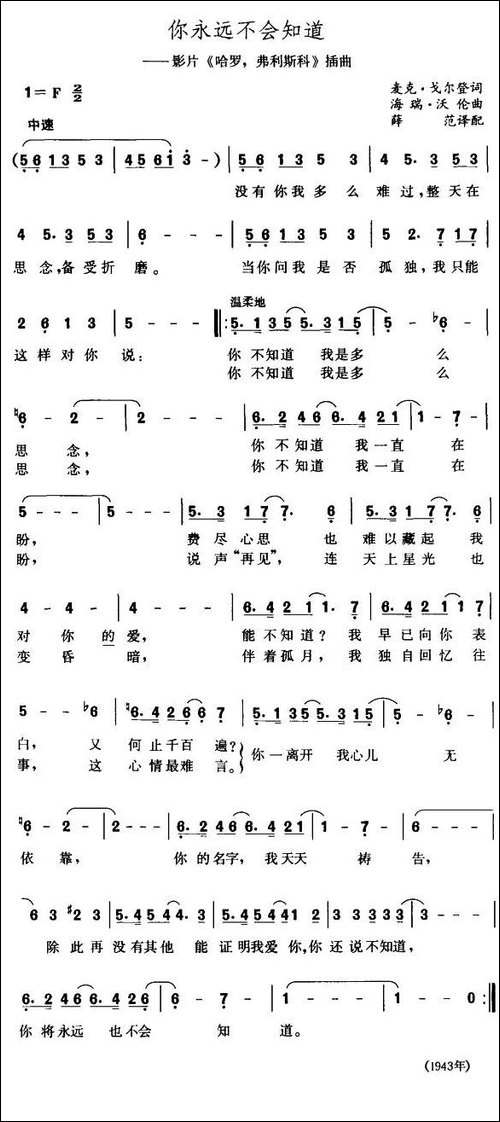 你永远不会知道
——影片《哈罗，弗利斯科》插曲
1=F 2/2
麦克·戈尔登词
海瑞·沃伦曲
薛范译配
中速
(5 6 1 3 5 3 | 4 5 6 1 3 - - ) | 5 6 1 3 5 3 | 4 5. 3 5 3 |
没有你我多么难过，整天在
4 5. 3 5 3 | 6 - - - | 5 6 1 3 5 3 | 5 2. 7 1 7 |
思念，备受折磨。 当你问我是否孤独，我只能
2 6 1 3 | 5 - - - ‖: 5. 1 3 5 5. 3 1 5 | 5 - ♭6 - |
温柔地
这样对你说： 你不知道 我是多么
你不知道 我是多么
♮6 - 2 - | 2 - - - | 6. 2 4 6 6. 4 2 1 | 1 - 7 - |
思念， 你不知道 我一直在
思念， 你不知道 我一直在
5 - - - | 5 - - - | 5. 3 1 7 7. 6 | 5. 3 1 7 7. 6 |
盼， 费尽心思也 难以藏起我
盼， 说声“再见”，连 天上星光也
4 - 4 - | 4 - - - | 6. 4 2 1 1. 7 | 6. 4 2 1 1 7 |
对你的爱， 能不知道？我 早已向你表
变昏暗， 伴着孤月，我 独自回忆往
5 - - ♭6 | ♮6. 4 2 6 6 7 | 5. 1 3 5 5. 3 1 5 | 5 - ♭6 - |
白， 又 何止千百遍？
你一离开 我心儿无
事， 这 心情最难言。
♮6 - 2 - | 2 - - - | 6. 2 4 6 6. 4 2 1 | 1 - 7 - | 6 - - - |
依靠， 你的名字，我天天祷告，
6 3 ♯2 3 | 5. 4 5 4 4. 3 | 5. 4 5 4 4 1 2 | 3 3 3 3 3 3 | 3 - - - |
除此再没有其他能证明我爱你，你还说不知道，
6. 2 4 6 6. 4 2 6 | 6 - 7 - | 1 - - - | 1 - - 0 :‖
你将永远也不会知道。
(1943年)